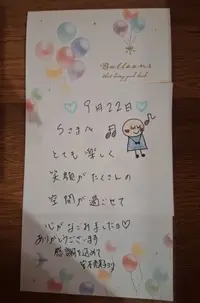 Balloons
♡9月22日♡
Sさまへ
とても楽しく
笑顔がたくさんの
空間が過ごせて
心がなごみました♡
ありがとうございます
感謝を込めて